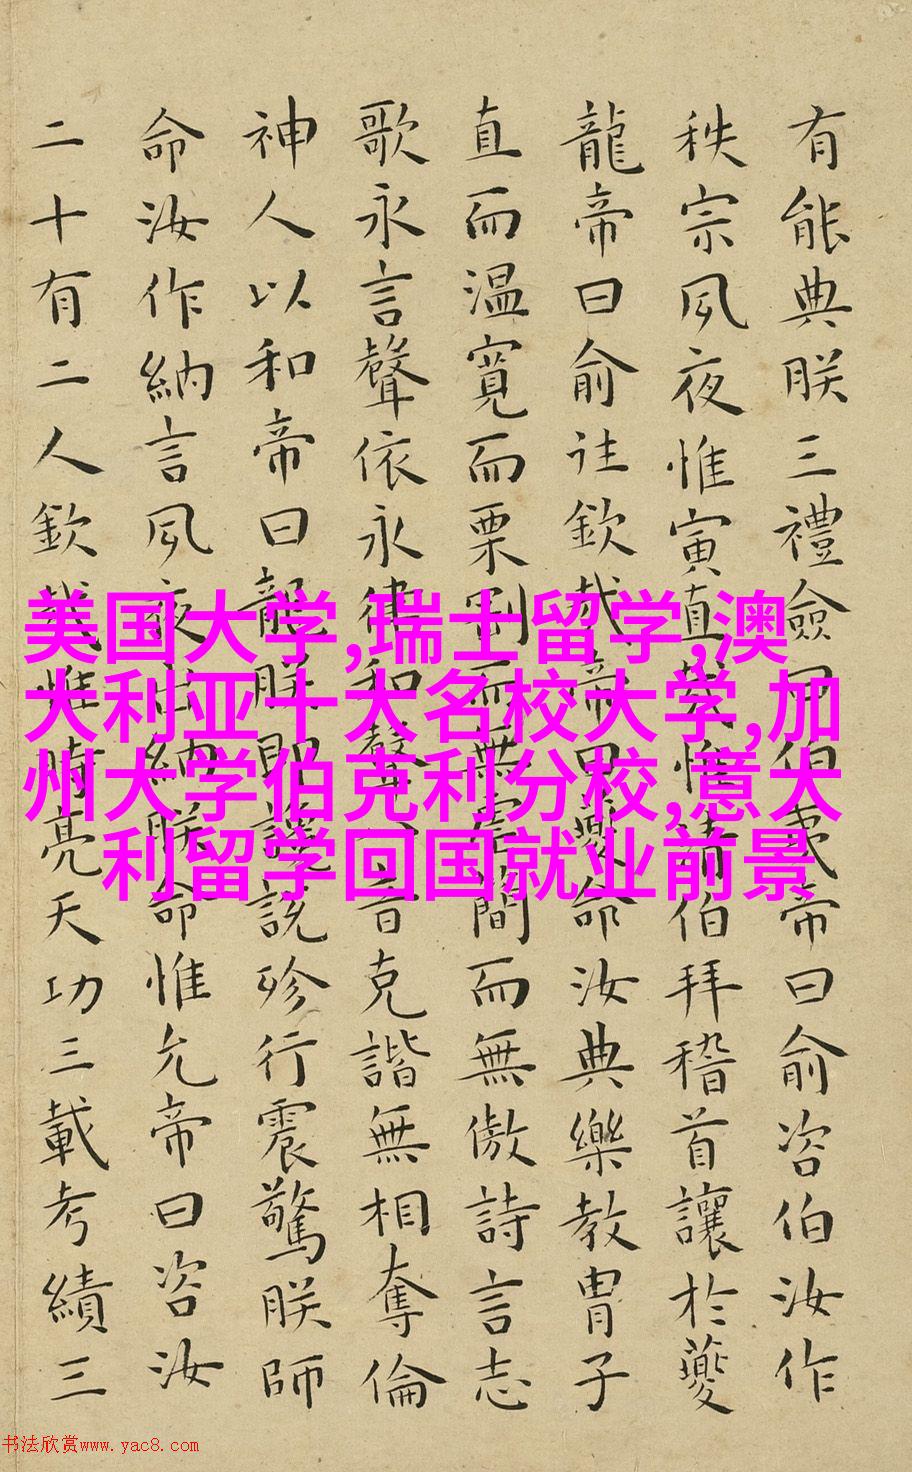 有能典朕三禮僉曰伯夷帝曰俞咨伯汝作
秩宗夙夜惟寅直哉惟清伯拜稽首讓於夔
龍帝曰俞往欽哉帝曰夔命汝典樂教胄子
直而温寬而栗剛而無虐簡而無傲詩言志
歌永言聲依永律和聲八音克諧無相奪倫
神人以和帝曰龍朕堲讒說殄行震驚朕師
命汝作納言夙夜出納朕命惟允帝曰咨汝
二十有二人欽哉惟時亮天功三載考績三
美国大学,瑞士留学,澳
大利亚十大名校大学,加
州大学伯克利分校,意大
利留学回国就业前景
书法欣赏www.yac8.com